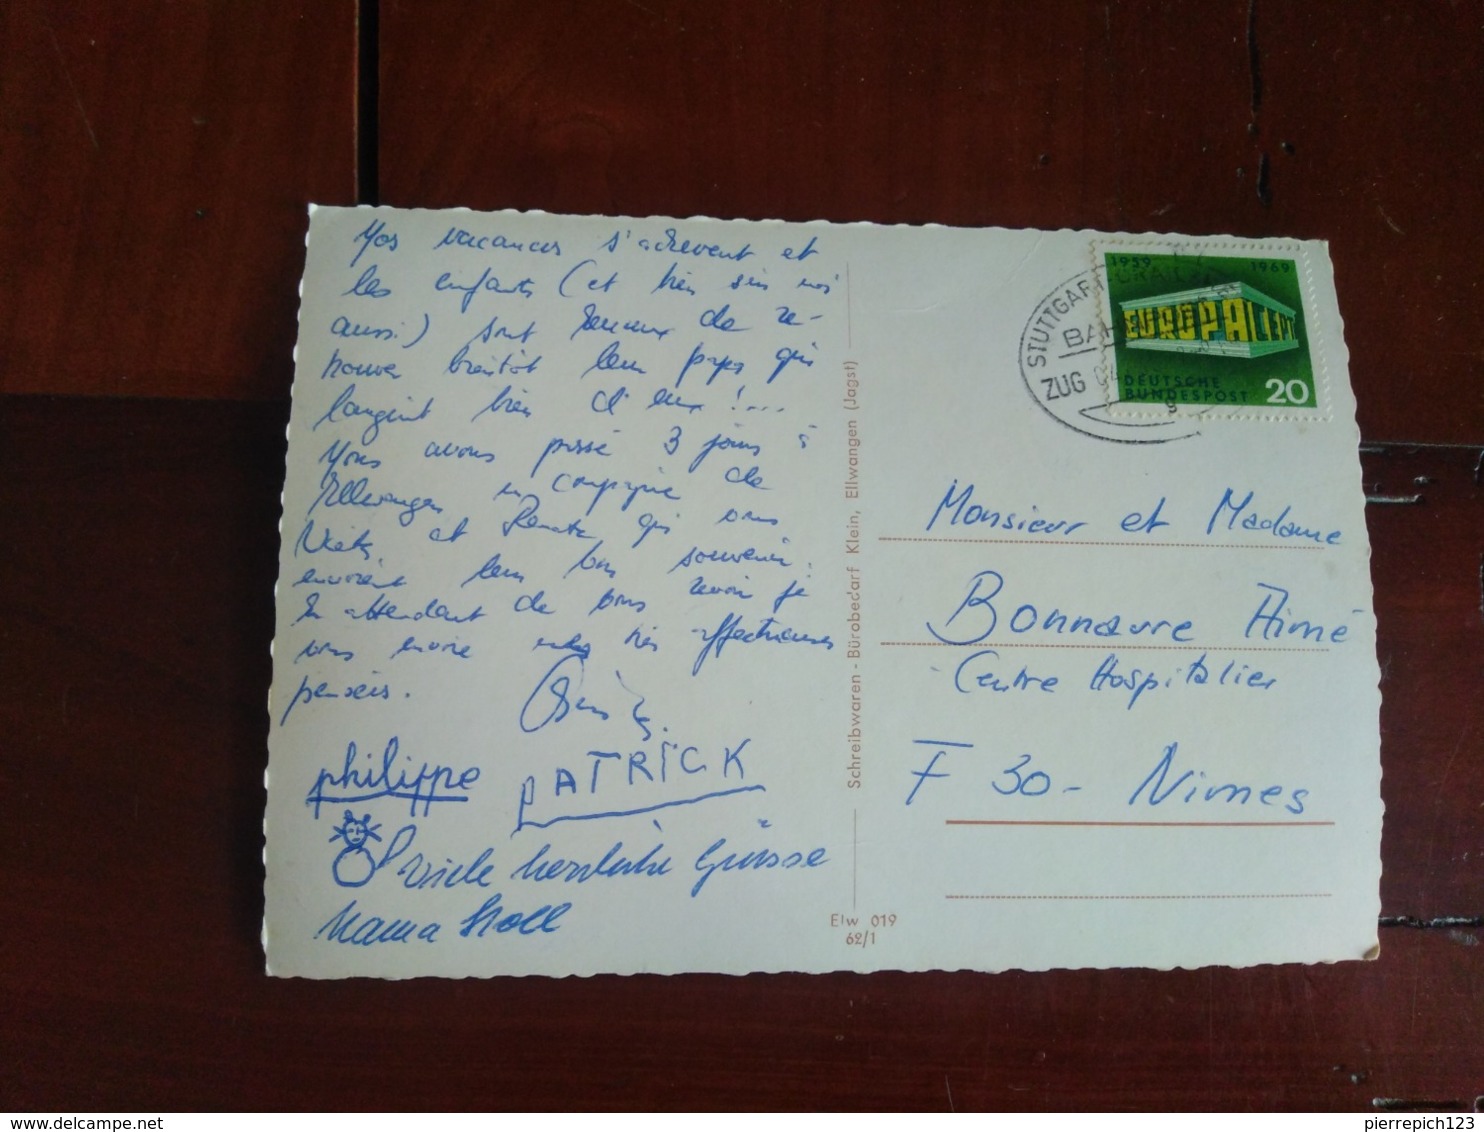 Nos vacances s'achèvent et
les enfants (et bien sûr moi
aussi) sont heureux de re-
trouver bientôt leur papa qui
languit bien d'eux !...
Nous avons passé 3 jours à
Ellwangen en compagnie de
et Renate qui vous
envoient leur bon souvenir.
En attendant de vous revoir je
vous envoie mes très affectueuses
pensées.
philippe PATRICK
viele herzliche Grüsse
Mama Stoll
Schreibwaren - Bürobedarf Klein, Ellwangen (Jagst)
Elw 019
62/1
STUTTGART
BAH
ZUG
1959 1969
EUROPA CEPT
DEUTSCHE
BUNDESPOST 20
Monsieur et Madame
Bonnaure Aimé
Centre Hospitalier
F 30 - Nimes
pierrepich123